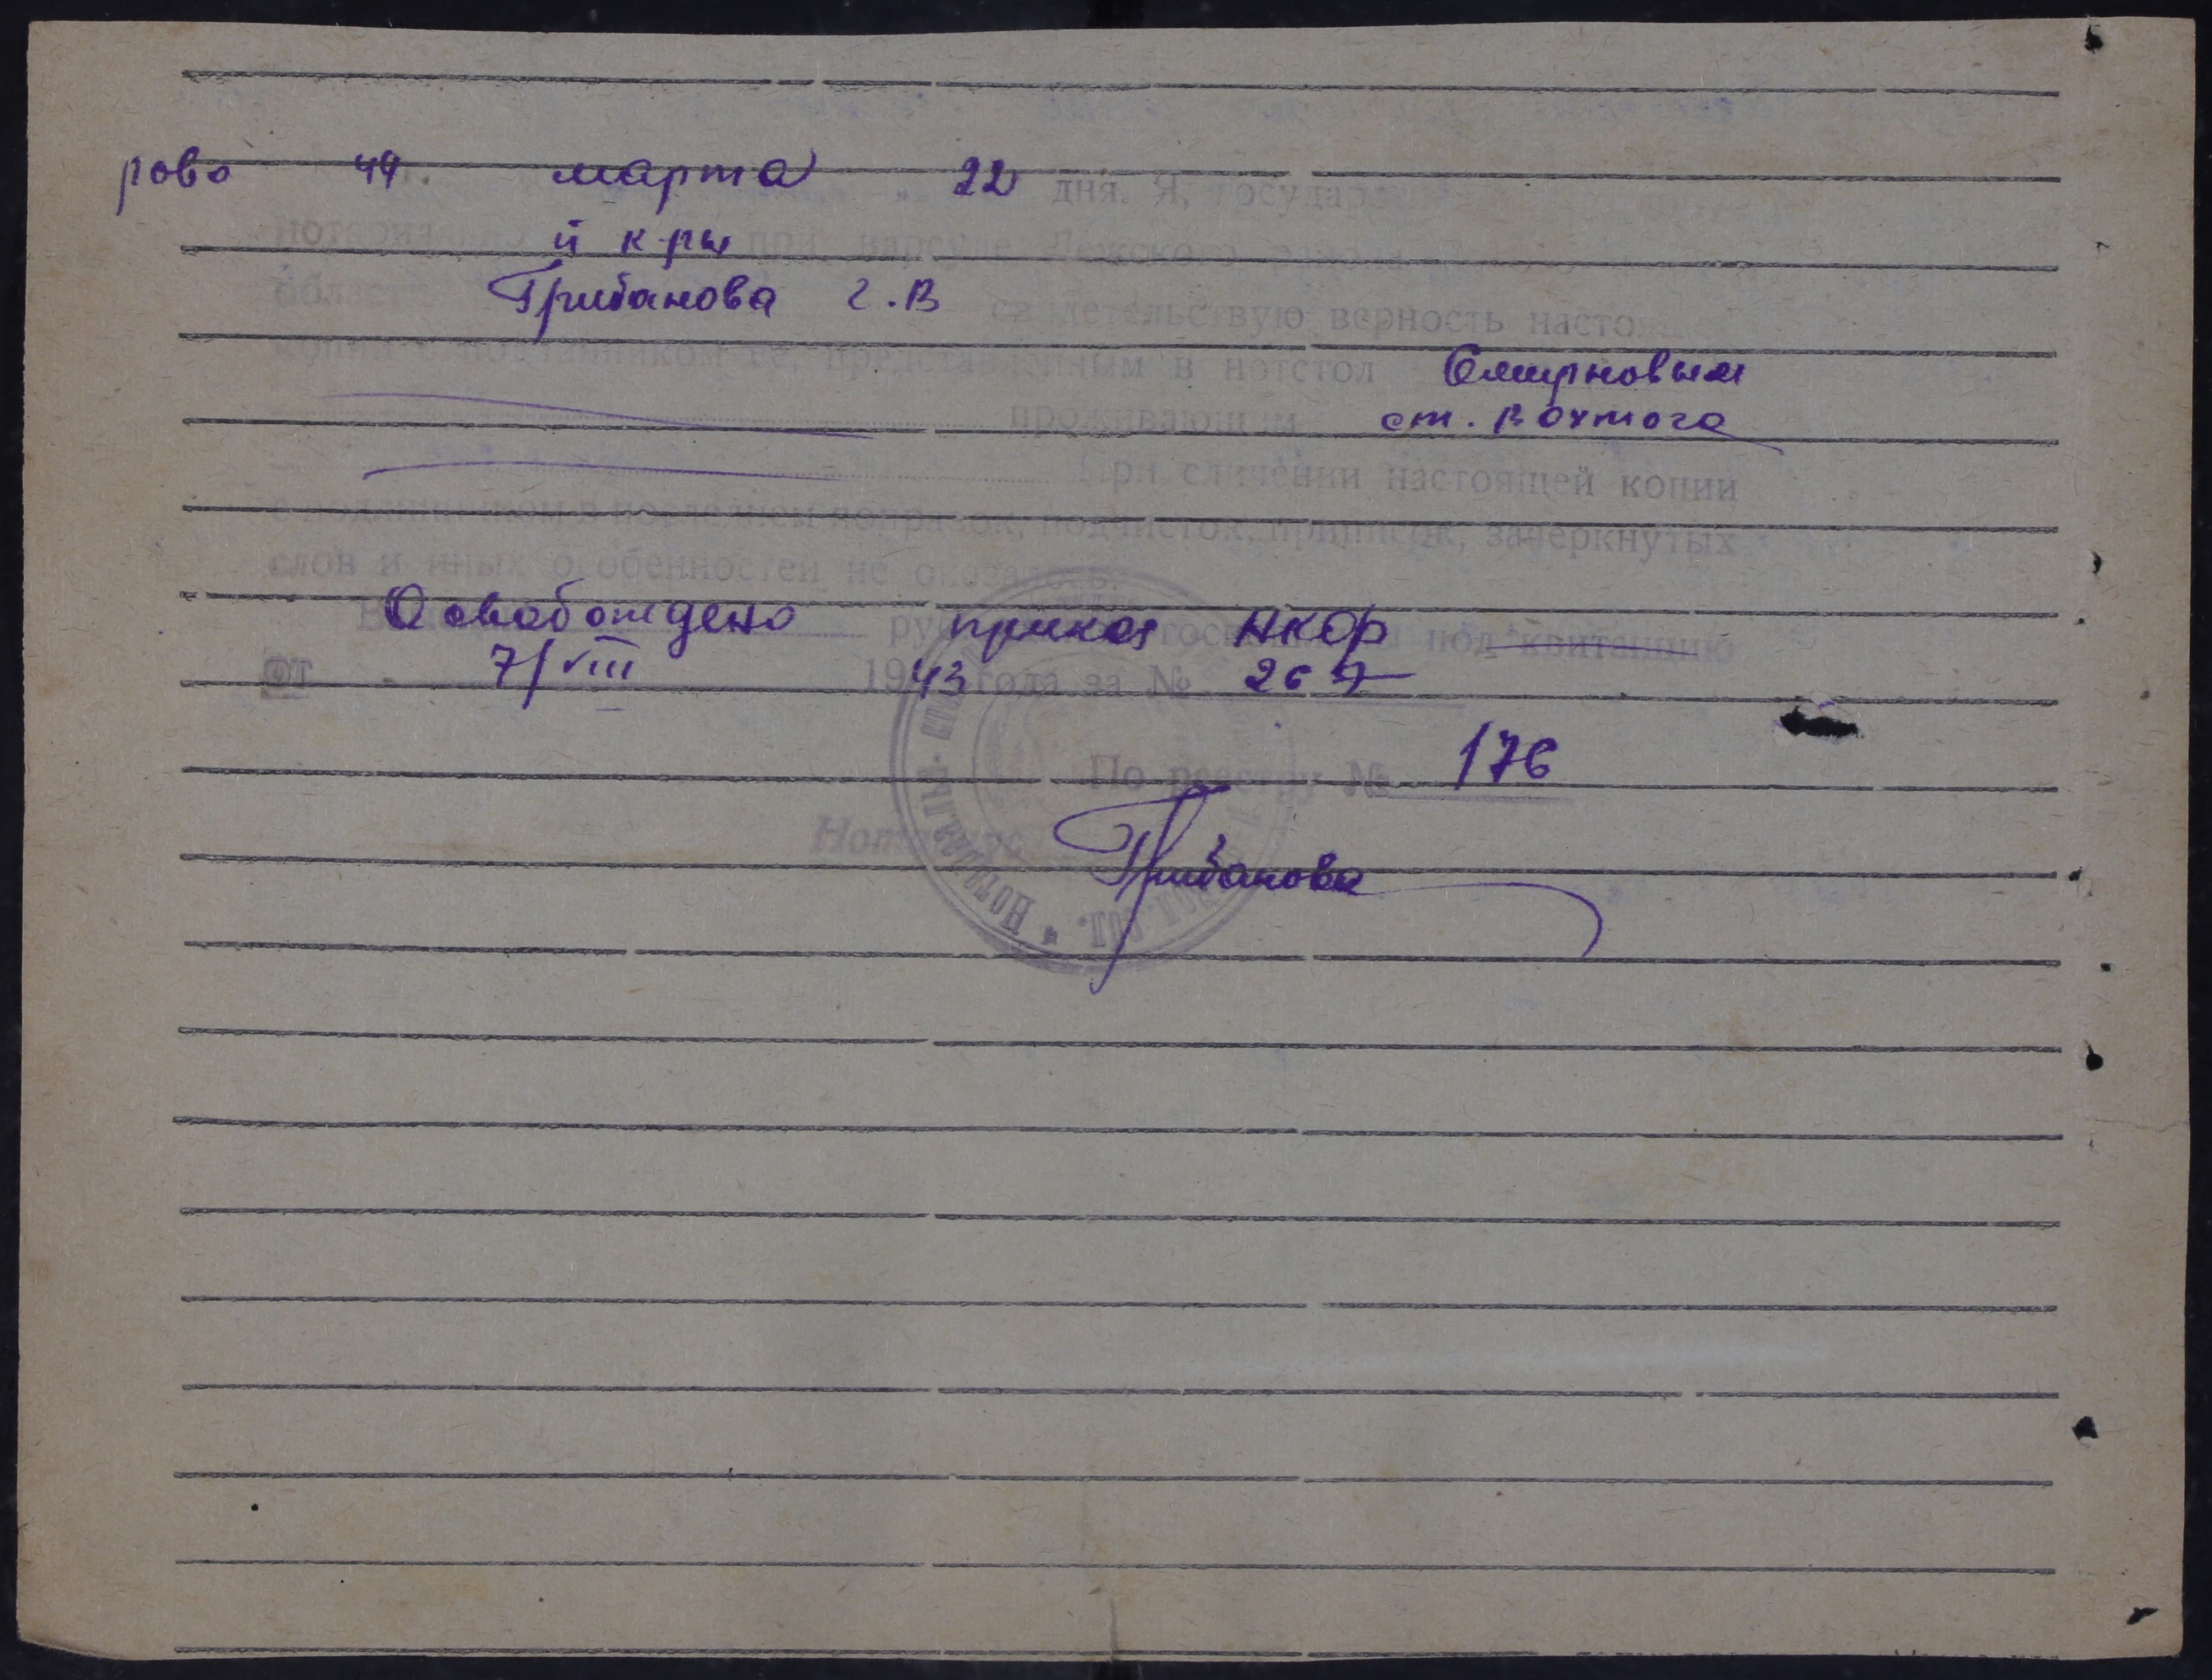 рово 44 марта 22 дня. Я, государ
й к-ры при нарсуде
Грибанова Г.В свидетельствую верность насто
копии с подлинником ее, представленным в нотстол Смирновым
проживающим ст. Вохтога
При сличении настоящей копии
с подлинником в последнем поправок, подчисток, приписок, зачеркнутых
слов и иных особенностей не оказалось
Освобождено приказ НКФ под квитанцию
от 7/VIII 1943 года за № 267
По реестру № 176
Нотариус Грибанова